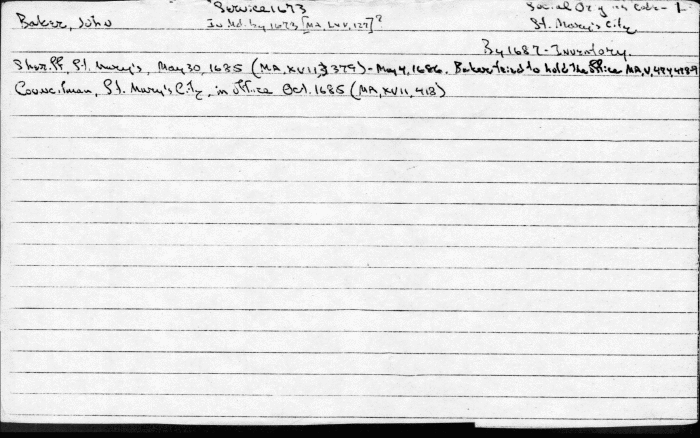 Service 1673
Social Org in Code - 1
Baker, John
In Md. by 1673 [MA, LXV, 127]?
St. Mary's City
By 1687 - Inventory.
Sheriff, St. Mary's, May 30, 1685 (MA, XVII, 379) - May 4, 1686. Baker tried to hold the office MA, V,
Councilman, St. Mary's City, in office Oct. 1685 (MA, XVII, 418)